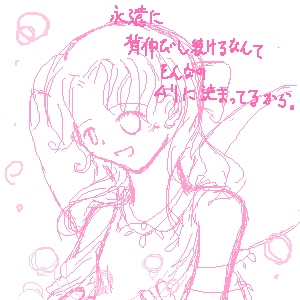 永遠に
背伸びし続けるなんて
そんなの
ムリに決まってるから。